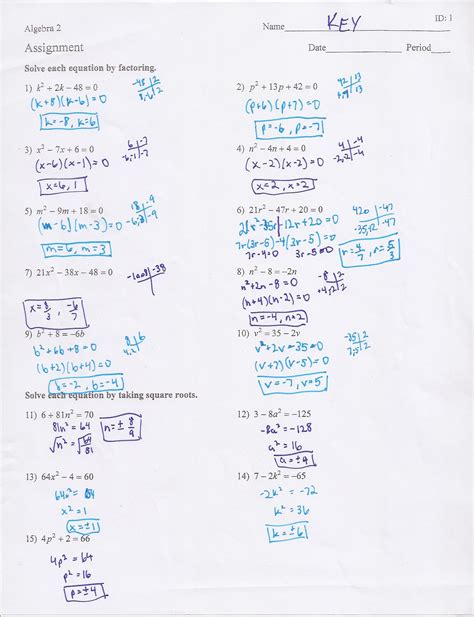 Algebra 2
Name KEY
ID: 1
Assignment
Date Period
Solve each equation by factoring.
1) k² + 2k − 48 = 0
-48 | 2
8,-6 | 2
(k+8)(k-6)=0
k=-8, k=6
2) p² + 13p + 42 = 0
42 | 13
(p+6)(p+7)=0
p=-6, p=-7
3) x² − 7x + 6 = 0
6 | -7
-6,-1 | -7
(x-6)(x-1)=0
x=6, 1
4) n² − 4n + 4 = 0
4 | -4
-2,-2 | -4
(x-2)(x-2)=0
x=2, x=2
5) m² − 9m + 18 = 0
18 | -9
-6,-3 | -9
(m-6)(m-3)=0
m=6, m=3
6) 21r² − 47r + 20 = 0
420 | -47
-35,-12 | -47
21r²-35r-12r+20=0
7r(3r-5)-4(3r-5)=0
7r-4=0 3r-5=0
r=4/7, r=5/3
7) 21x² − 38x − 48 = 0
-1008 | -38
x=8/3, -6/7
8) n² − 8 = −2n
-8 | 2
+4,-2 | 2
n²+2n-8=0
(n+4)(n-2)=0
n=-4, n=2
9) b² + 8 = −6b
8 | 6
4,2 |
b²+6b+8=0
(b+2)(b+4)=0
b=-2, b=-4
10) v² = 35 − 2v
-35 | 2
7,-5 | 2
v²+2v-35=0
(v+7)(v-5)=0
v=-7, v=5
Solve each equation by taking square roots.
11) 6 + 81n² = 70
81n²=64
√n²=√64/81
n=±8/9
12) 3 − 8a² = −125
-8a²=-128
a²=16
a=±4
13) 64x² − 4 = 60
64x²=64
x²=1
x=±1
14) 7 − 2k² = −65
-2k²=-72
k²=36
k=±6
15) 4p² + 2 = 66
4p²=64
p²=16
p=±4